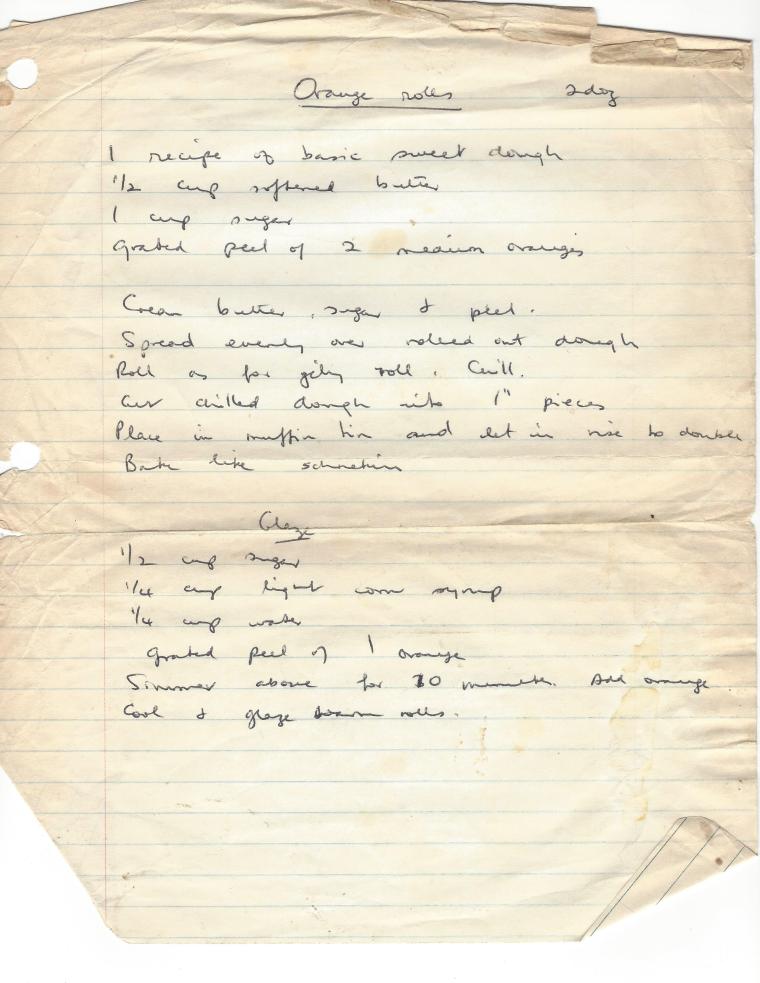 Orange rolls 2doz
1 recipe of basic sweet dough
1/2 cup softened butter
1 cup sugar
Grated peel of 2 medium oranges
Cream butter, sugar & peel.
Spread evenly over rolled out dough
Roll as for jelly roll. Chill.
Cut chilled dough into 1" pieces
Place in muffin tin and let rise to double
Bake like
Glaze
1/2 cup sugar
1/4 cup light corn syrup
1/4 cup water
grated peel of 1 orange
Simmer above for 10 minutes. Add orange
Cool & glaze warm rolls.